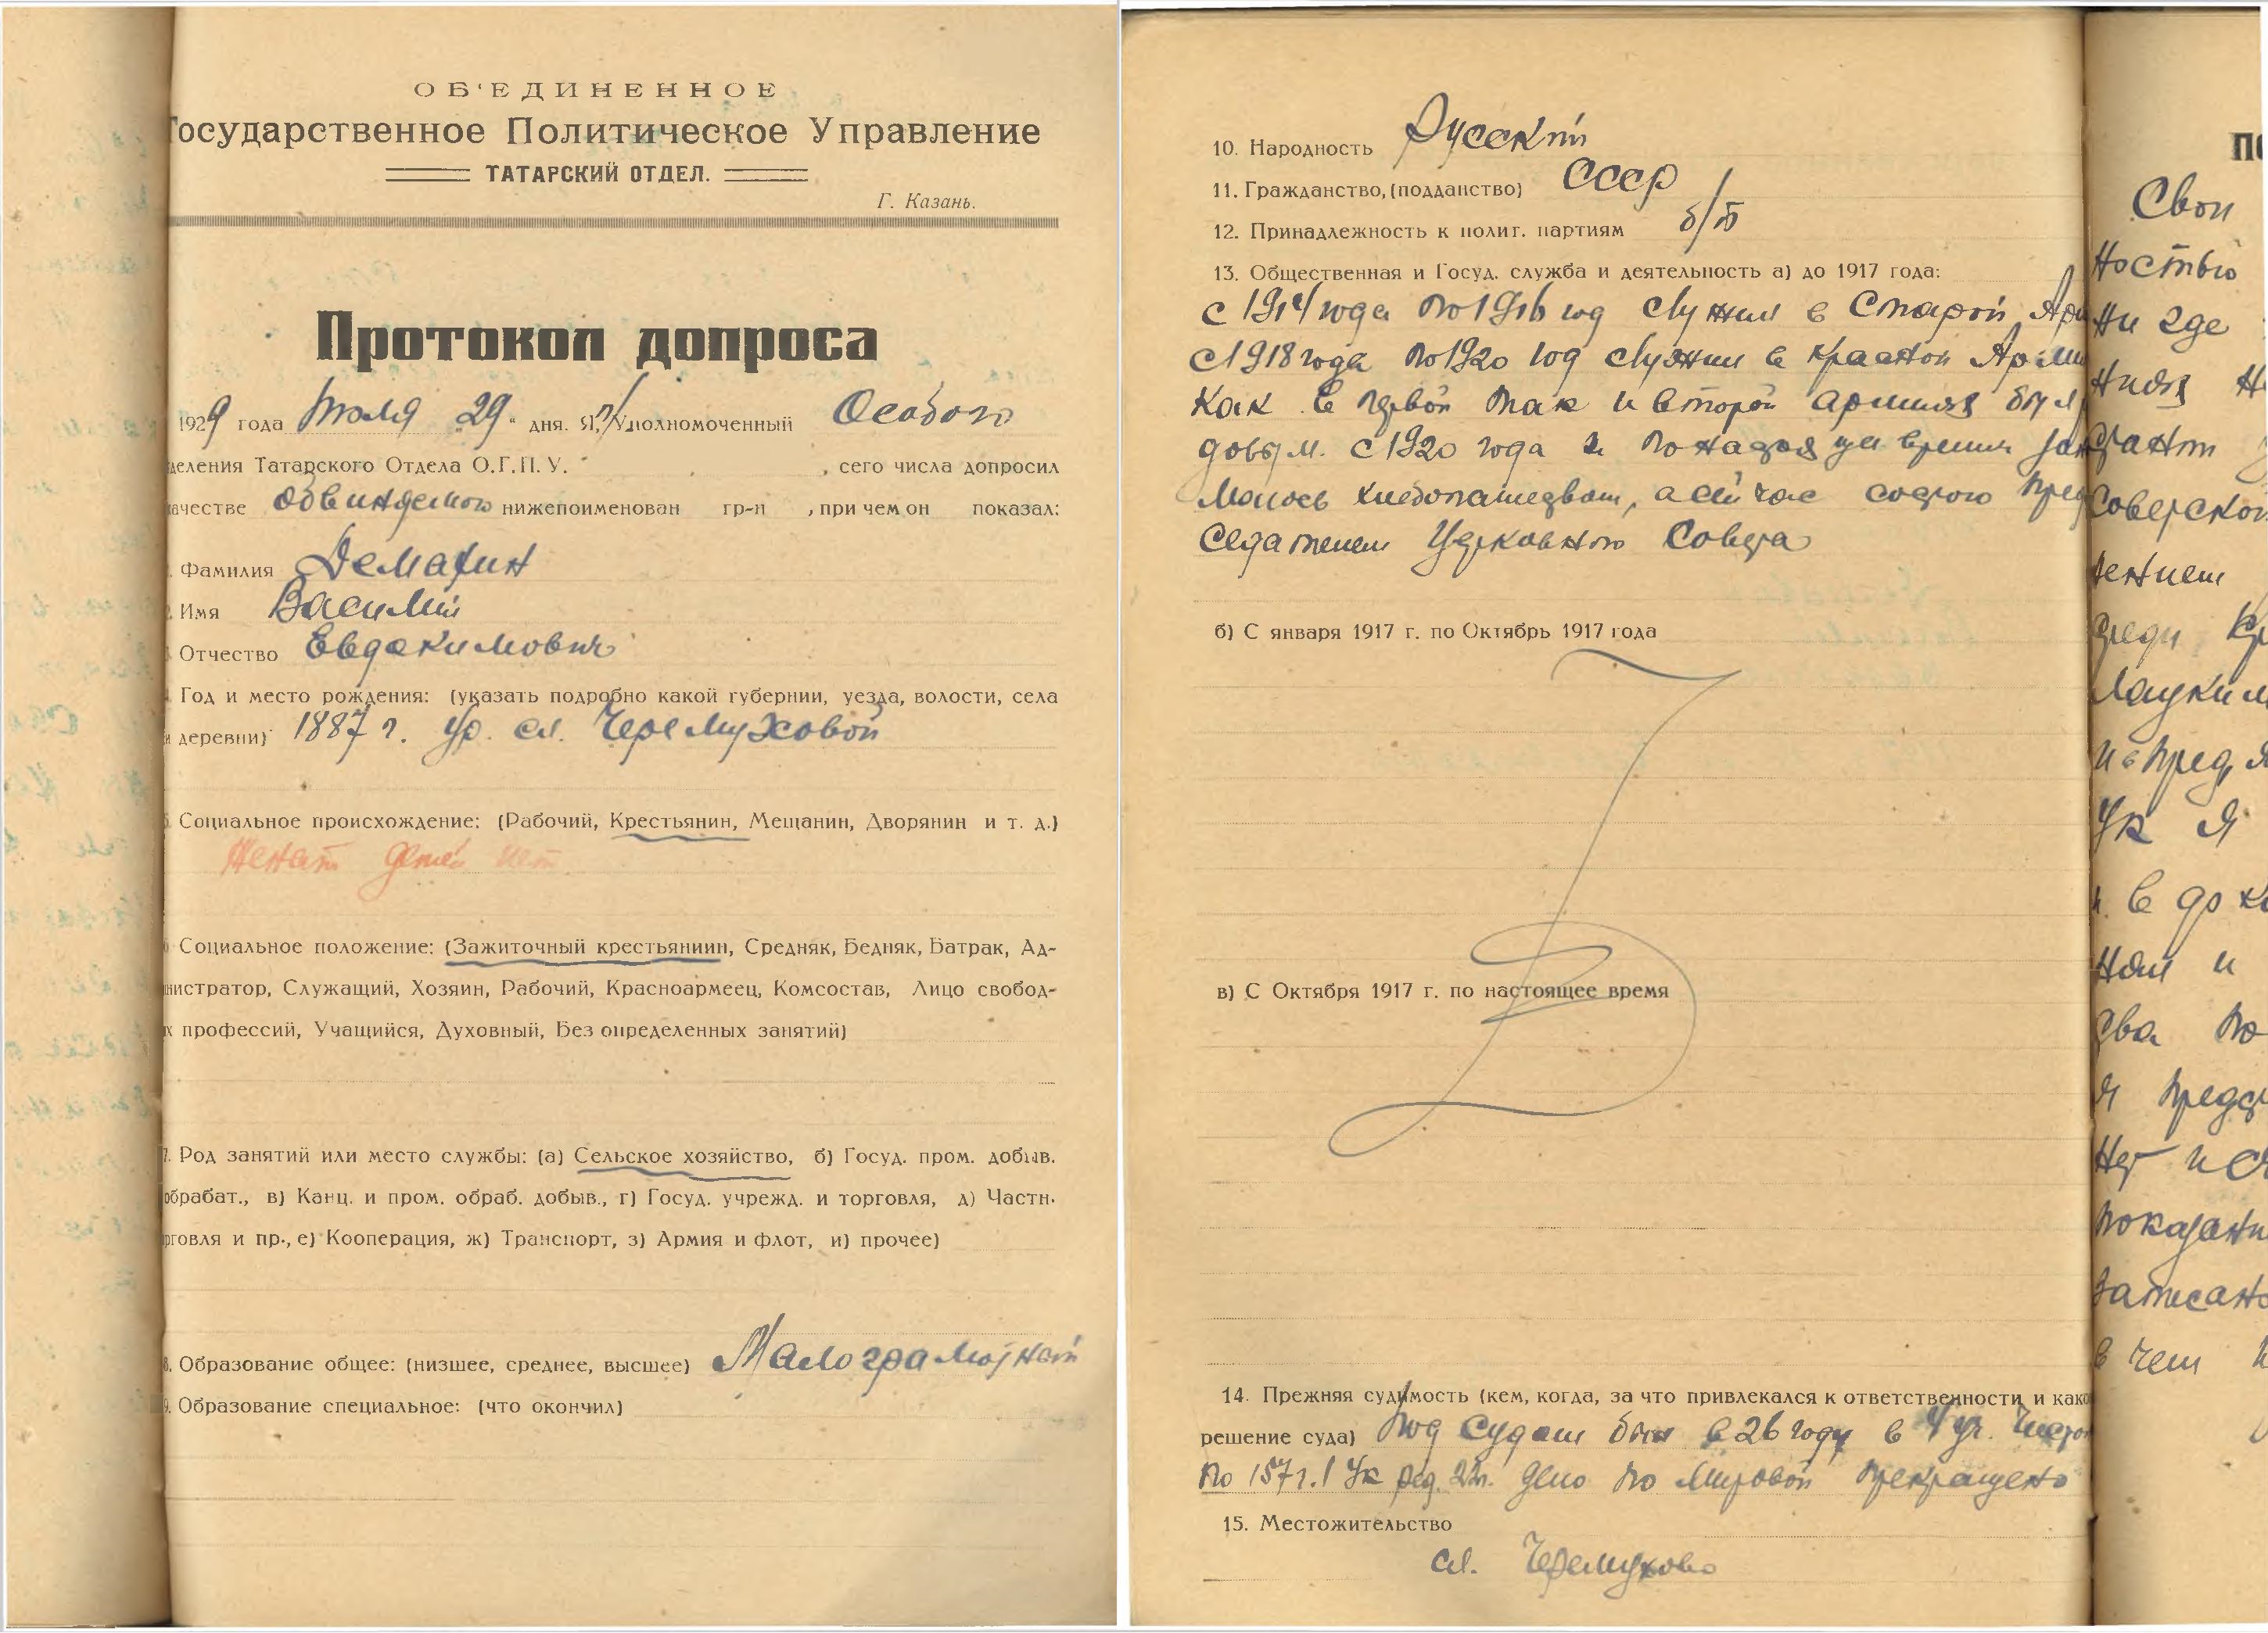 ОБ'ЕДИНЕННОЕ
Государственное Политическое Управление
ТАТАРСКИЙ ОТДЕЛ.
Г. Казань.
Протокол допроса
1929 года Июля "29" дня. Я, П/Уполномоченный Особого
деления Татарского Отдела О.Г.П.У. , сего числа допросил
ачестве обвиняемого нижепоименован гр-н , при чем он показал:
Фамилия Демахин
Имя Василий
Отчество Евдокимович
Год и место рождения: (указать подробно какой губернии, уезда, волости, села
и деревни) 1887 г. ур. сл. Черемуховой
5. Социальное происхождение: (Рабочий, Крестьянин, Мещанин, Дворянин и т. д.)
Женат детей нет
Социальное положение: (Зажиточный крестьянин, Средняк, Бедняк, Батрак, Ад-
министратор, Служащий, Хозяин, Рабочий, Красноармеец, Комсостав, Лицо свобод-
х профессий, Учащийся, Духовный, Без определенных занятий)
7. Род занятий или место службы: (а) Сельское хозяйство, б) Госуд. пром. добыв.
обрабат., в) Канц. и пром. обраб. добыв., г) Госуд. учрежд. и торговля, д) Частн.
рговля и пр., е) Кооперация, ж) Транспорт, з) Армия и флот, и) прочее)
8. Образование общее: (низшее, среднее, высшее) Малограмотный
9. Образование специальное: (что окончил)
10. Народность Русский
11. Гражданство, (подданство) СССР
12. Принадлежность к полит. партиям б/п
13. Общественная и Госуд. служба и деятельность а) до 1917 года:
с 1914 года по 1916 год служил в Старой Арм
с 1918 года по 1920 год служил в красной Арми
как в первой так и второй армиях был ря
довым. с 1920 года и по настоящее время зан
маюсь хлебопашеством, а сейчас состою пред
седателем Церковного Совета
б) С января 1917 г. по Октябрь 1917 года
в) С Октября 1917 г. по настоящее время
14. Прежняя судимость (кем, когда, за что привлекался к ответственности и како
решение суда) Под судом был в 26 году в 4 уч.
по 157 г. 1 Ук ред. 22 г. дело по мировой прекращено
15. Местожительство
сл. Черемухово
По
Свои
ностью
ни где
ниях